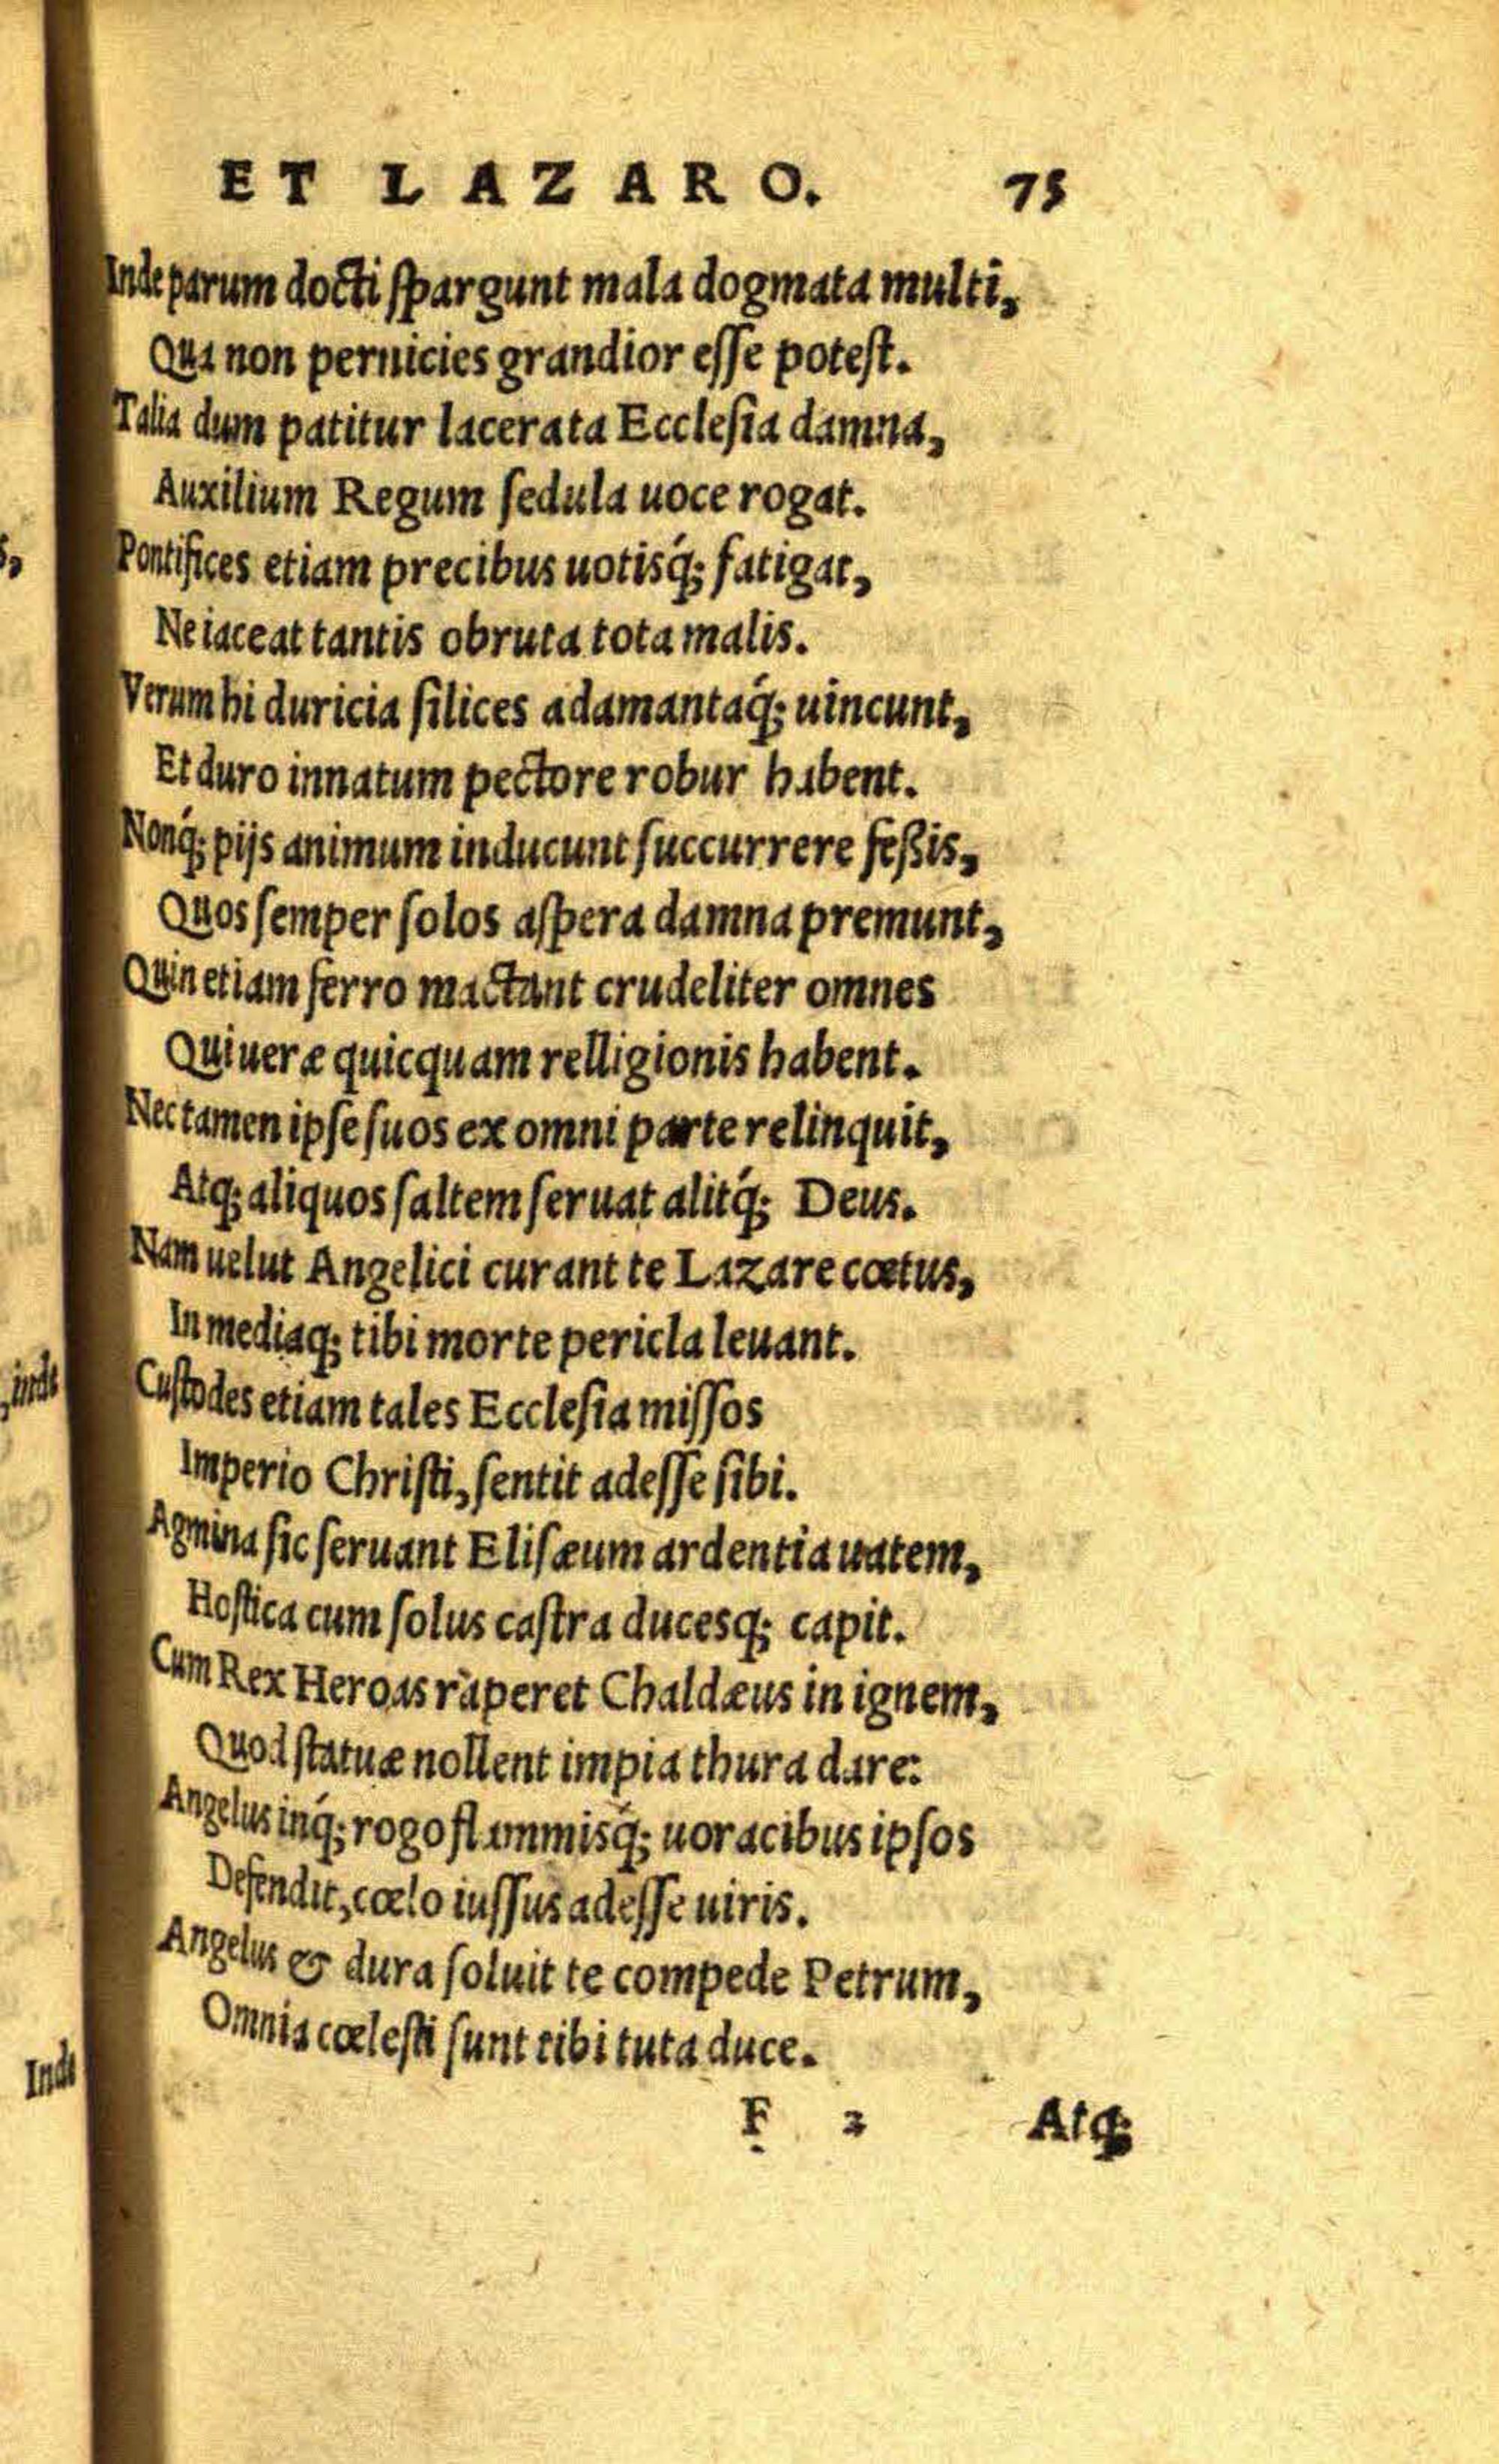 ET LAZARO. 75
Inde parum docti spargunt mala dogmata multi,
Qua non pernicies grandior esse potest.
Talia dum patitur lacerata Ecclesia damna,
Auxilium Regum sedula uoce rogat.
Pontifices etiam precibus uotisq́; fatigat,
Ne iaceat tantis obruta tota malis.
Verum hi duricia silices adamantaq́; uincunt,
Et duro innatum pectore robur habent.
Nonq́; pijs animum inducunt succurrere feßis,
Quos semper solos aspera damna premunt,
Quin etiam ferro mactant crudeliter omnes
Qui ueræ quicquam relligionis habent.
Nec tamen ipse suos ex omni parte relinquit,
Atq; aliquos saltem seruat alitq́; Deus.
Nam uelut Angelici curant te Lazare cœtus,
In mediaq; tibi morte pericla leuant.
Custodes etiam tales Ecclesia missos
Imperio Christi, sentit adesse sibi.
Agmina sic seruant Elisæum ardentia uatem,
Hostica cum solus castra ducesq; capit.
Cum Rex Heroas raperet Chaldæus in ignem,
Quod statuæ nollent impia thura dare:
Angelus inq́; rogo flammisq́; uoracibus ipsos
Defendit, cœlo iussus adesse uiris.
Angelus & dura soluit te compede Petrum,
Omnia cœlesti sunt tibi tuta duce.
F 2 Atq;